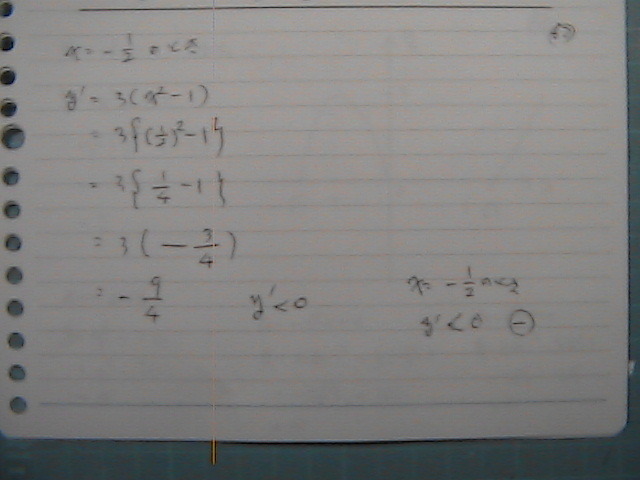 x = -1/2 のとき
y' = 3(x² - 1)
= 3{(1/2)² - 1}
= 3{1/4 - 1}
= 3(-3/4)
= -9/4 y' < 0
x = -1/2 のとき
y' < 0 ⊖